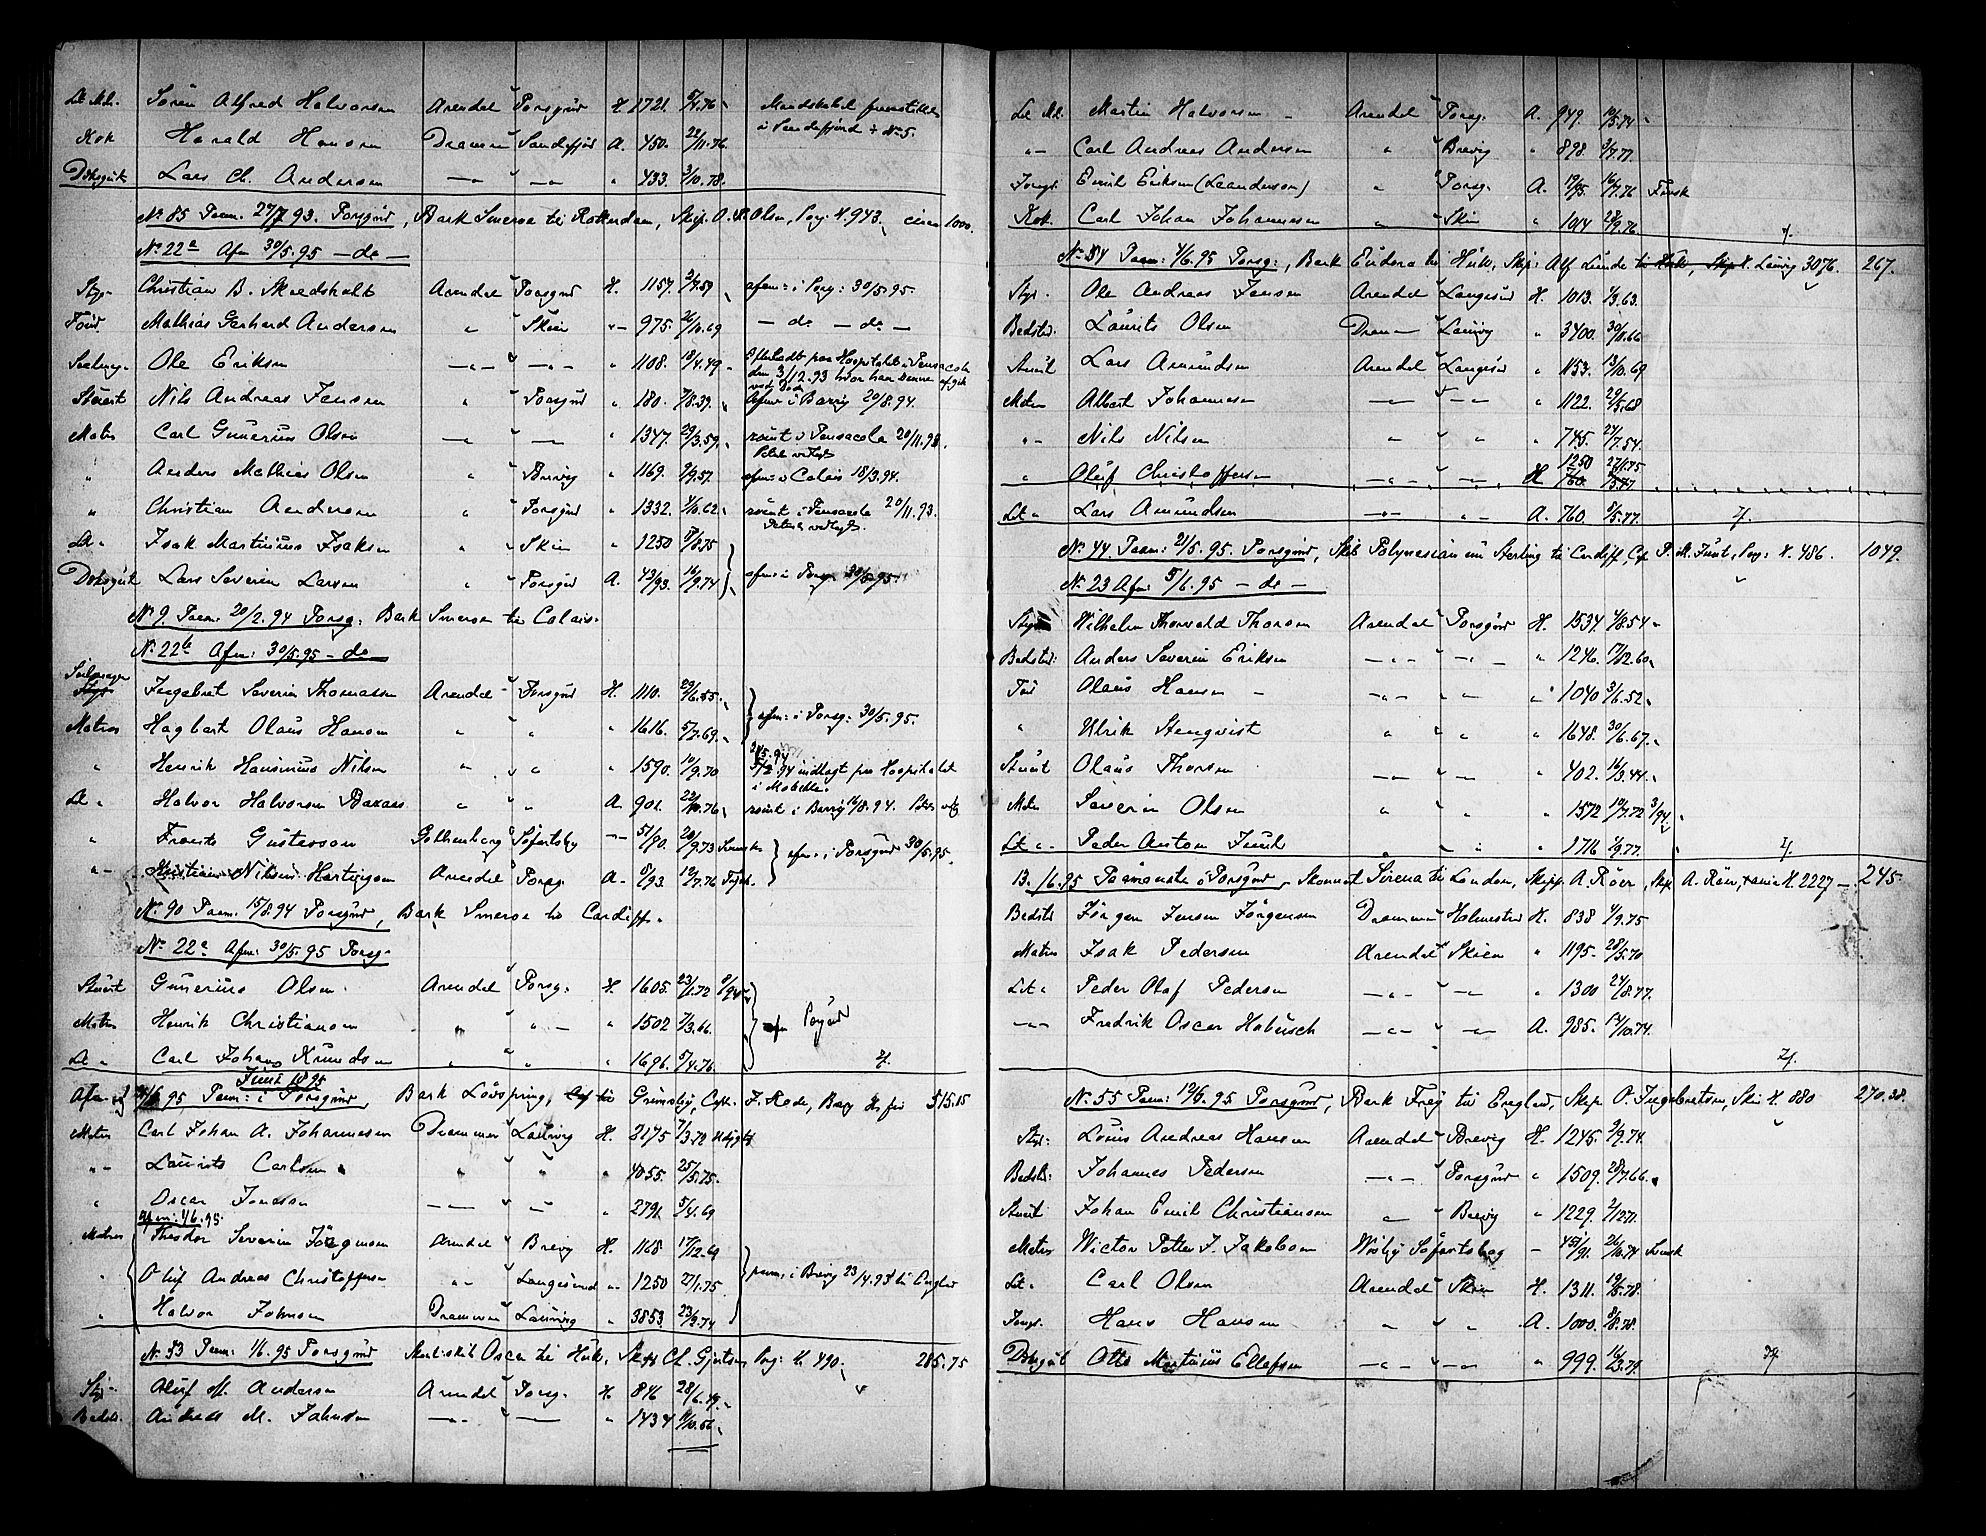 Let Mtr. Søren Alfred Halvorsen Arendal Porsgrd H. 1721. 5/4.76 Mandskabet fremstillet
Kok Harald Hansen Drammen Sandefjord A. 450. 22/11.76. i Sandefjord + No 5.
Dæksgut Lars Ch. Andersen — „ — — „ — „ 433. 3/10.78.
No. 85 Paam. 27/7 93. Porsgrd, Bark Smerse til Rotterdam, Skip. O. Olsen, Porsg: H. 943. circa 1000.
No 22 a Afm 30/5.95 — do —
Styr. Christian B. Skredsholt Arendal Porsgrd H. 1157. afm: i Porsg: 30/5.95.
Tømd. Mathias Gerhard Andersen „ Skien „ 975. 26/10.69 — do — do —
Seilmag. Ole Eriksen — „ — — „ — „ 1108. 18/4.49 Efterladt paa Hospitalet i Pensacola
den 3/12.93 hvor han senere afgik
ved Død
Stuert Nils Andreas Jensen „ Porsgrd „ 180. 7/8.39. Afm: i Barry 20/8.94.
Matros Carl Gunerius Olsen — „ — — „ 1347. 29/3.59. rømt i Pensacola 20/11.93.
„ Anders Mathias Olsen „ Brevig „ 1169. 9/9.57. afm: i Calais 18/3.94.
„ Christian Andersen „ Porsgrd „ 1332. 4/10.62. rømt i Pensacola 20/11.93.
Let „ Isak Martinius Isaksen „ Skien „ 1250
Dæksgut Lars Severin Larsen „ Porsgrd A. 43/93. 16/9.74 afm: i Porsg. 30/5.95.
No 9. Paam. 20/2.94 Porsg: Bark Smerse til Calais.
No. 22 b Afm: 30/5.95 — do —
Seilmager
Styr Ingebret Severin Thomassen Arendal Porsgrd H. 1110. 29/6.55. afm: i Porsg: 30/5.95.
Matros Hagbart Olaus Hansen „ „ „ 1616. 5/7.69.
„ Henrik Hansinius Nilsen „ „ „ 1590. 10/9.70 indlagt paa Hospitalet
i Mobile.
Let „ Halvor Halvorsen „ „ A. 901. 22/10.76 rømt i Barry 16/8.94.
„ Frants Gustesson Gothenborg Søfartsby — 51/90. 20/9.73 Svensk afm: i Porsgrd 30/5.95.
„ Kristian Nilsen Hartvigsen Arendal Porsg. A. 8/93. 12/7.76
No. 90 Paam. 15/8.94 Porsgrd, Bark Smerse til Cardiff.
No 22 c Afm: 30/5.95 Porsg.
Stuert Gunerius Olsen Arendal Porsg. H. 1605. 23/1.72 8/94
Matros Henrik Christiansen „ „ — „ 1502 7/3.66. afm Porsgrd
Let „ Carl Johan Knudsen „ „ „ 1696. 5/4.76.
Juni 1895
4/6 95, Paam: i Porsgrund, Bark Løvspring, til Grimsby, Capt. J. Rode, Barg 515.15
Matros Carl Johan A. Johannesen Drammen Laurvig H. 2175 7/3.72
„ Laurits Carlsen „ „ „ 4055. 25/5.75.
„ Oscar Jonsson — „ — „ 2791. 5/4.69
Afm: 4/6.95.
Matros Theodor Severin Jörgensen Arendal Brevig H. 1168 17/12.69
„ Oluf Andreas Christoffersen „ Langesund „ 1250 27/1.75 paam: i Brevig 23/4.95 til England
„ Halvor Johnsen Drammen Laurvig „ 3853. 23/2.74
No. 53 Paam: 1/6.95 Porsgrund Skonskib Oscar til Hull, Skip: Ch. Gjertsen, Porsg: H. 490. 285.75
Styr. Oluf M. Andersen Arendal Porsg. H. 846 28/6.49.
Bedstd. Andreas M. Johnsen — „ — — „ 1434 9/10.56
Let Mtr. Martin Halvorsen Arendal Porsg. A. 949. 10/5.74
„ Carl Andreas Andersen „ Brevig „ 898. 3/7.77.
Jungm. Emil Eriksen (Leanderson) „ Porsg. A. 19/95. 16/7.76 Finsk
Kok. Carl Johan Johannesen „ Skien „ 1014 23/9.76
No 54 Paam: 4/6.95 Porsg:, Bark Eudora til Hull, Skip: Alf Lunde til Hull, Skip H. Laurvig 3076. 267.
Styr. Ole Andreas Jensen Arendal Langesund H. 1013. 1/3.63.
Bedstd. Laurits Olsen Dram — Laurvig „ 3400. 30/11.66
Stuert Lars Amundsen Arendal Langesd „ 1153. 13/10.69
Matr. Albert Johannesen — „ — — „ — „ 1122. 29/5.68
„ Nils Nilsen „ „ „ 745. 24/7.54.
1250 27/1.75
„ Oluf Christoffersen — „ — — „ — H 760
Let „ Lars Amundsen — „ — „ — A. 760. 9/5.77.
No. 44 Paam: 21/5.95. Porsgrund, Skib Polynesian til Cardiff, Cpt P. M. Juul, Porsg: H. 486. 1049.
No. 23 Afm: 5/6.95 — do —
Styr Wilhelm Thorvald Thorsen Arendal Porsgrund H. 1534. 4/8.54
Bedstd: Anders Severin Eriksen — „ — — „ — „ 1246. 17/12.60
Tøm Olaus Hansen — „ — „ „ 1040 3/6.52.
„ Ulrik Stenqvist „ „ „ 1648. 30/6.67.
Stuert Olaus Thorsen — „ — „ — „ 402. 16/3.44.
Matr. Severin Olsen „ „ „ 1572 10/7.72 3/94
Let „ Peder Anton Juul „ „ „ 1716 2/9.77.
13./6.95 Paamønstr i Porsgrund, Skonnert Sirena til London, Skip. A. Röer, Skp. A. Röer, H. 2227 — 245.
Bedstd Jörgen Jensen Jörgensen Drammen Holmestrd H. 838 4/9.75
Matros Isak Pedersen Arendal Skien „ 1195. 28/5.70
Let „ Peder Olaf Pedersen — „ — — „ — „ 1300 24/8.77.
— „ — Fredrik Oscar Hobusch — „ — — „ — A. 985. 14/10.74.
No. 55 Paam: 12/6.95 Porsgrund, Bark Frey til England, Skip. O. Ingebretsen, Skien H. 880 270.38.
Styr: Louis Andreas Hansen Arendal Brevig H. 1245. 2/9.74.
Bedstd: Johannes Pedersen — „ — Porsgrund „ 1509. 28/7.66.
Stuert Johan Emil Christiansen „ Brevig „ 1229. 2/12.71.
Matros Victor Petter J. Jakobsson Wisby Søfartsbog — 451/91. 26/10.74 Svensk
Let „ Carl Olsen Arendal Skien H. 1311. 19/5.78.
Jungm. Hans Hansen „ „ A. 1000. 8/8.78.
Dæksgut Otto Martinius Ellefsen — „ — — „ — „ 999. 16/3.79.